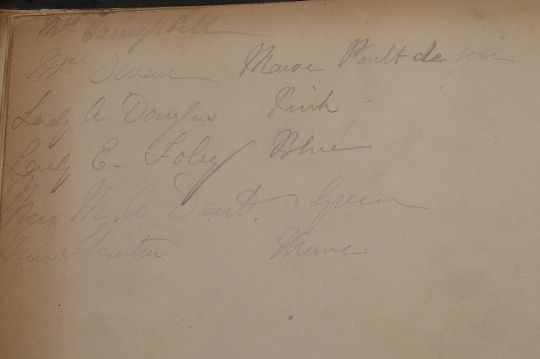 Mrs Campbell
Mrs Sevan Mauve Poult de soie
Lady A Douglas Pink
Lady E- Foley Blue
Mrs M. A Dent. Green
Miss Stanton Mauve